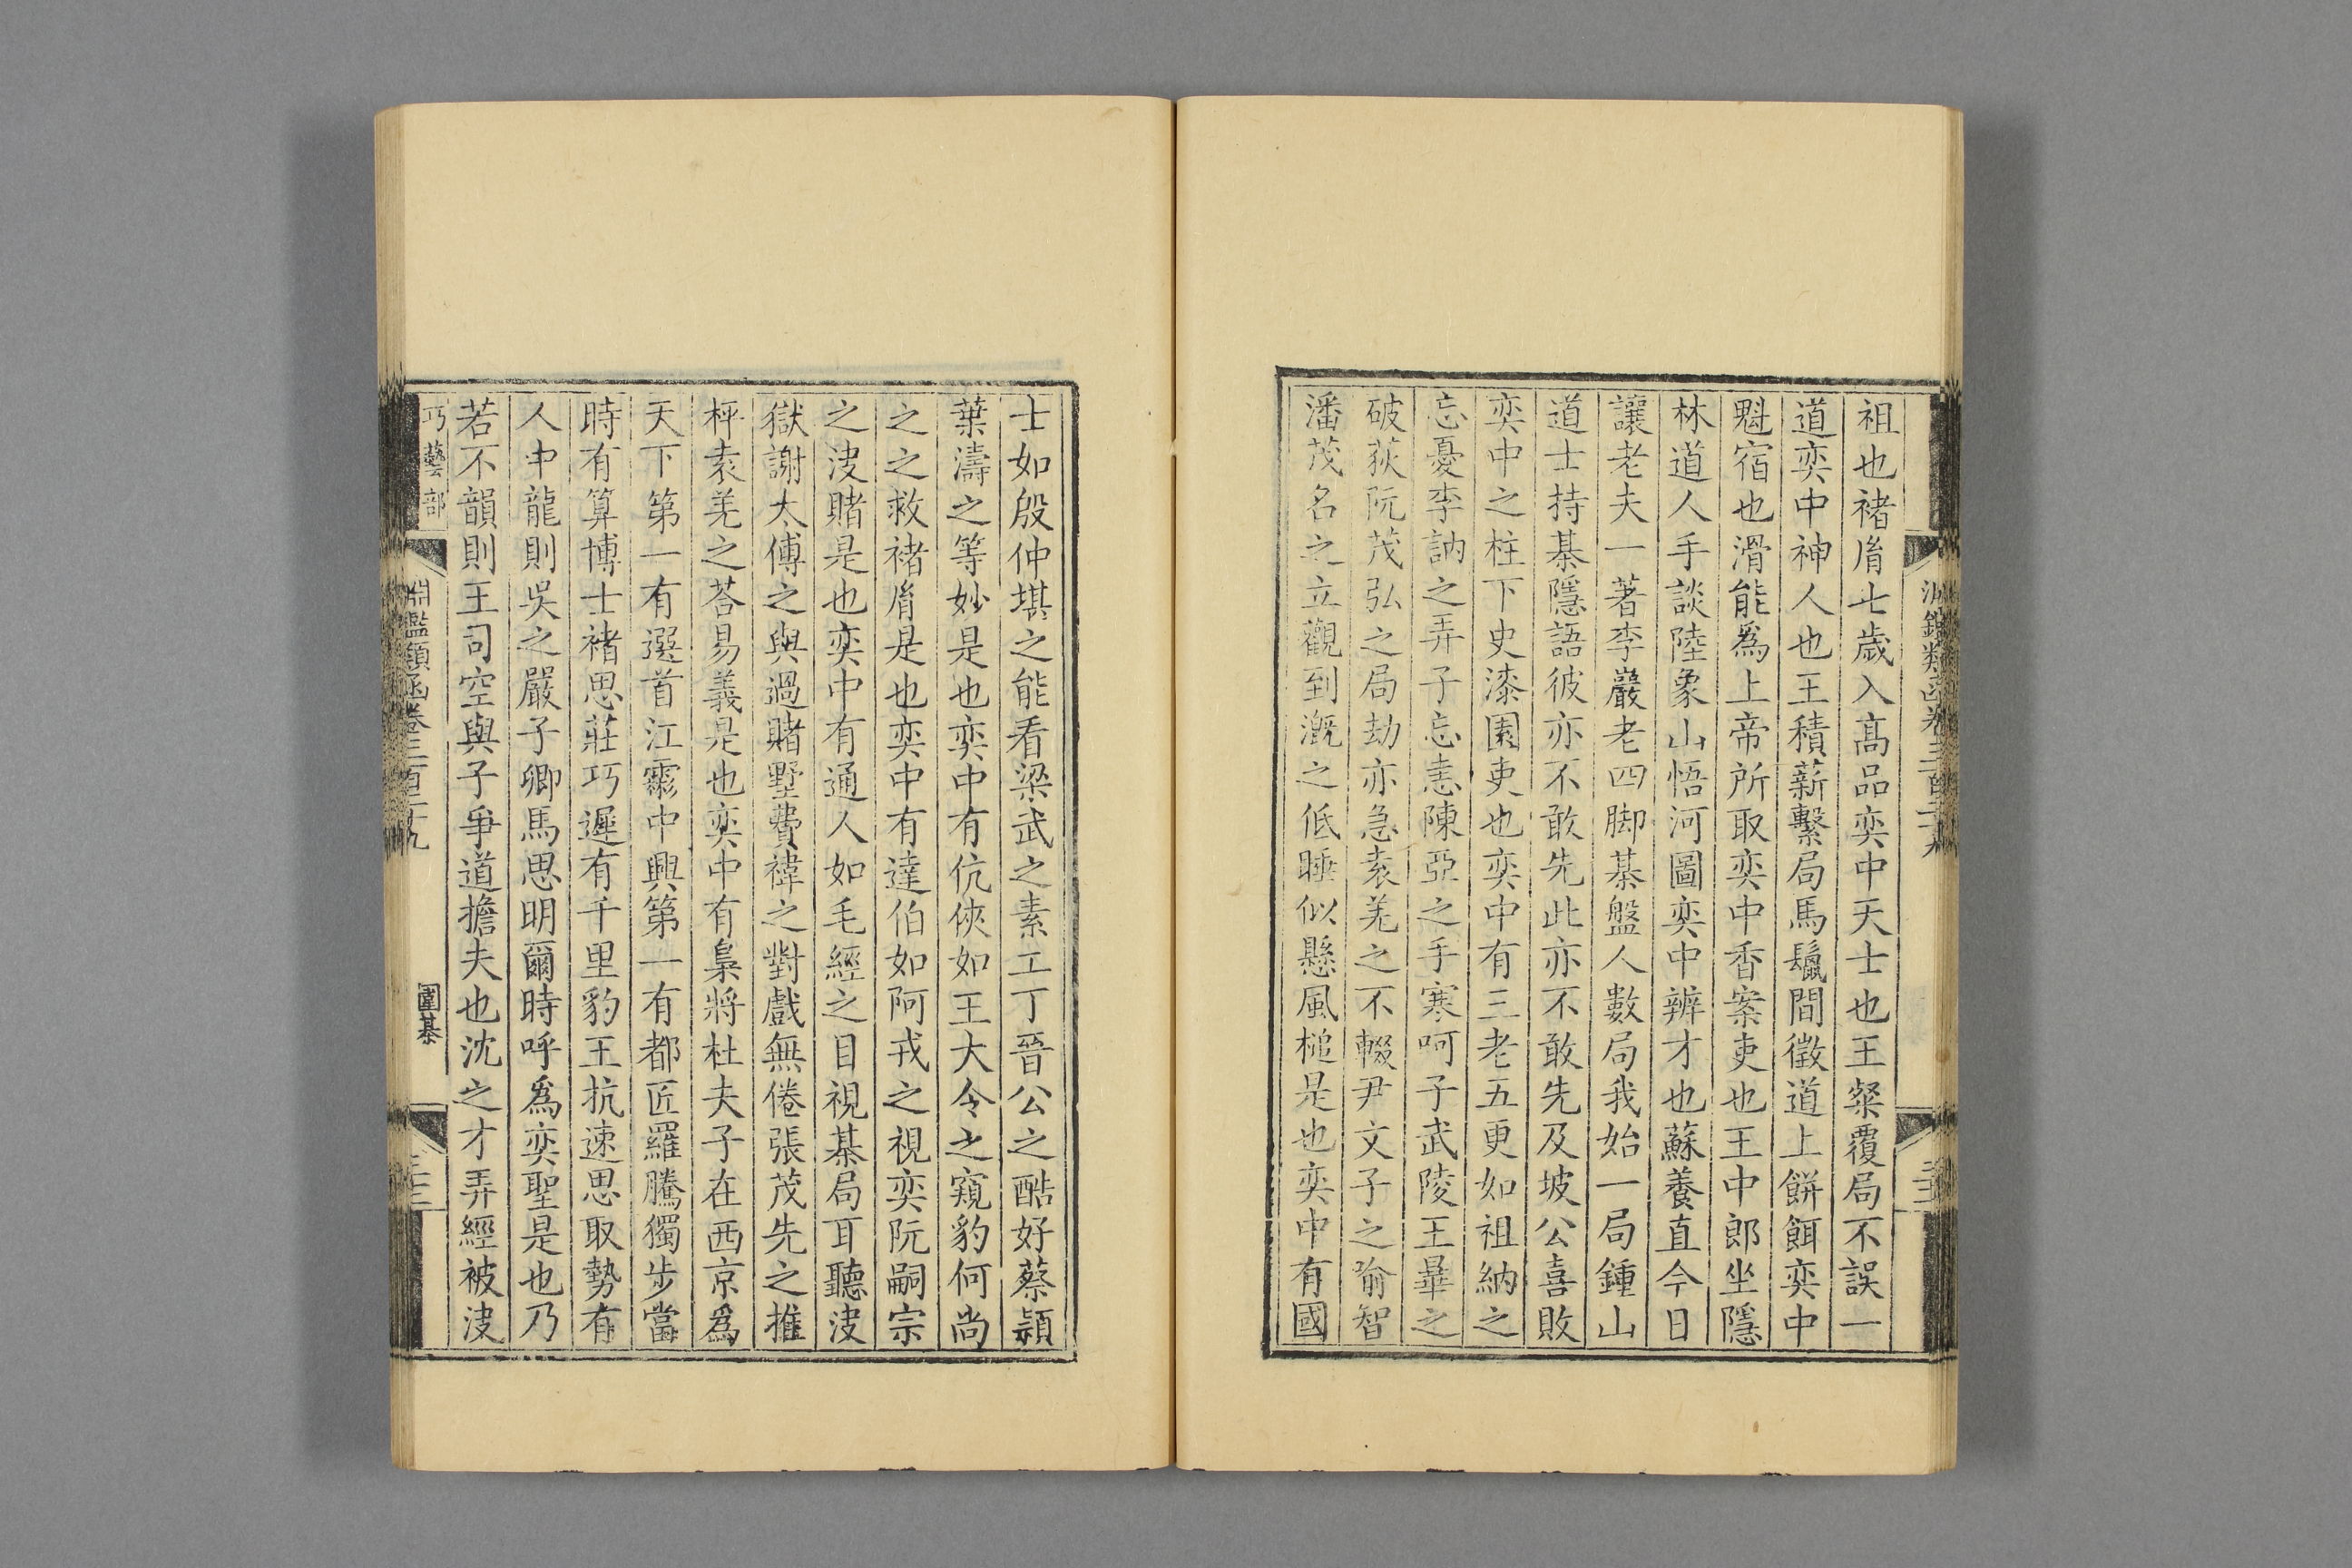 祖也褚胤七歲入高品奕中天士也王粲覆局不誤一
道奕中神人也王積薪繫局馬鬛間徵道上餅餌奕中
魁宿也滑能爲上帝所取奕中香案吏也王中郎坐隱
林道人手談陸象山悟河圖奕中辨才也蘇養直今日
讓老夫一著李巖老四脚棊盤人數局我始一局鍾山
道士持棊隱語彼亦不敢先此亦不敢先及坡公喜敗
奕中之柱下史漆園吏也奕中有三老五更如祖納之
忘憂李訥之弄子忘恚陳亞之手寒呵子武陵王曅之
破荻阮茂弘之局劫亦急袁羌之不輟尹文子之喻智
潘茂名之立觀到溉之低睡似懸風槌是也奕中有國
士如殷仲堪之能看梁武之素工丁晉公之酷好蔡潁
葉濤之等妙是也奕中有伉俠如王大令之窺豹何尚
之之救褚胤是也奕中有達伯如阿戎之視奕阮嗣宗
之决賭是也奕中有通人如毛經之目視棊局耳聽决
獄謝太傅之與過賭墅費禕之對戲無倦張茂先之推
枰袁羌之荅易義是也奕中有梟將杜夫子在西京爲
天下第一有選首江霦中興第一有都匠羅騰獨步當
時有算博士褚思莊巧遲有千里豹王抗速思取勢有
人中龍則吳之嚴子卿馬思明爾時呼爲奕聖是也乃
若不韻則王司空與子爭道擔夫也沈之才弄經被决
巧藝部
淵鑑類函卷三百二十九
圍棊